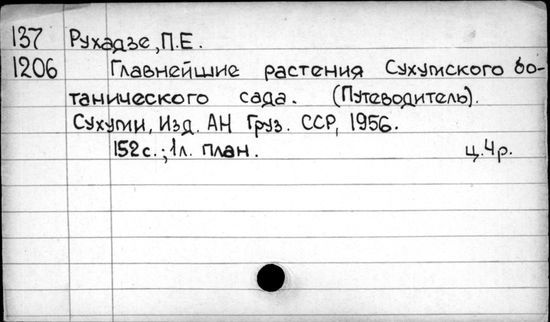 137 Рухадзе, П.Е.
1206 Главнейшие растения Сухумского бо-
танического сада. (Путеводитель).
Сухуми, Изд. АН Груз. ССР, 1956.
152с.; 1л. план. ц.4р.